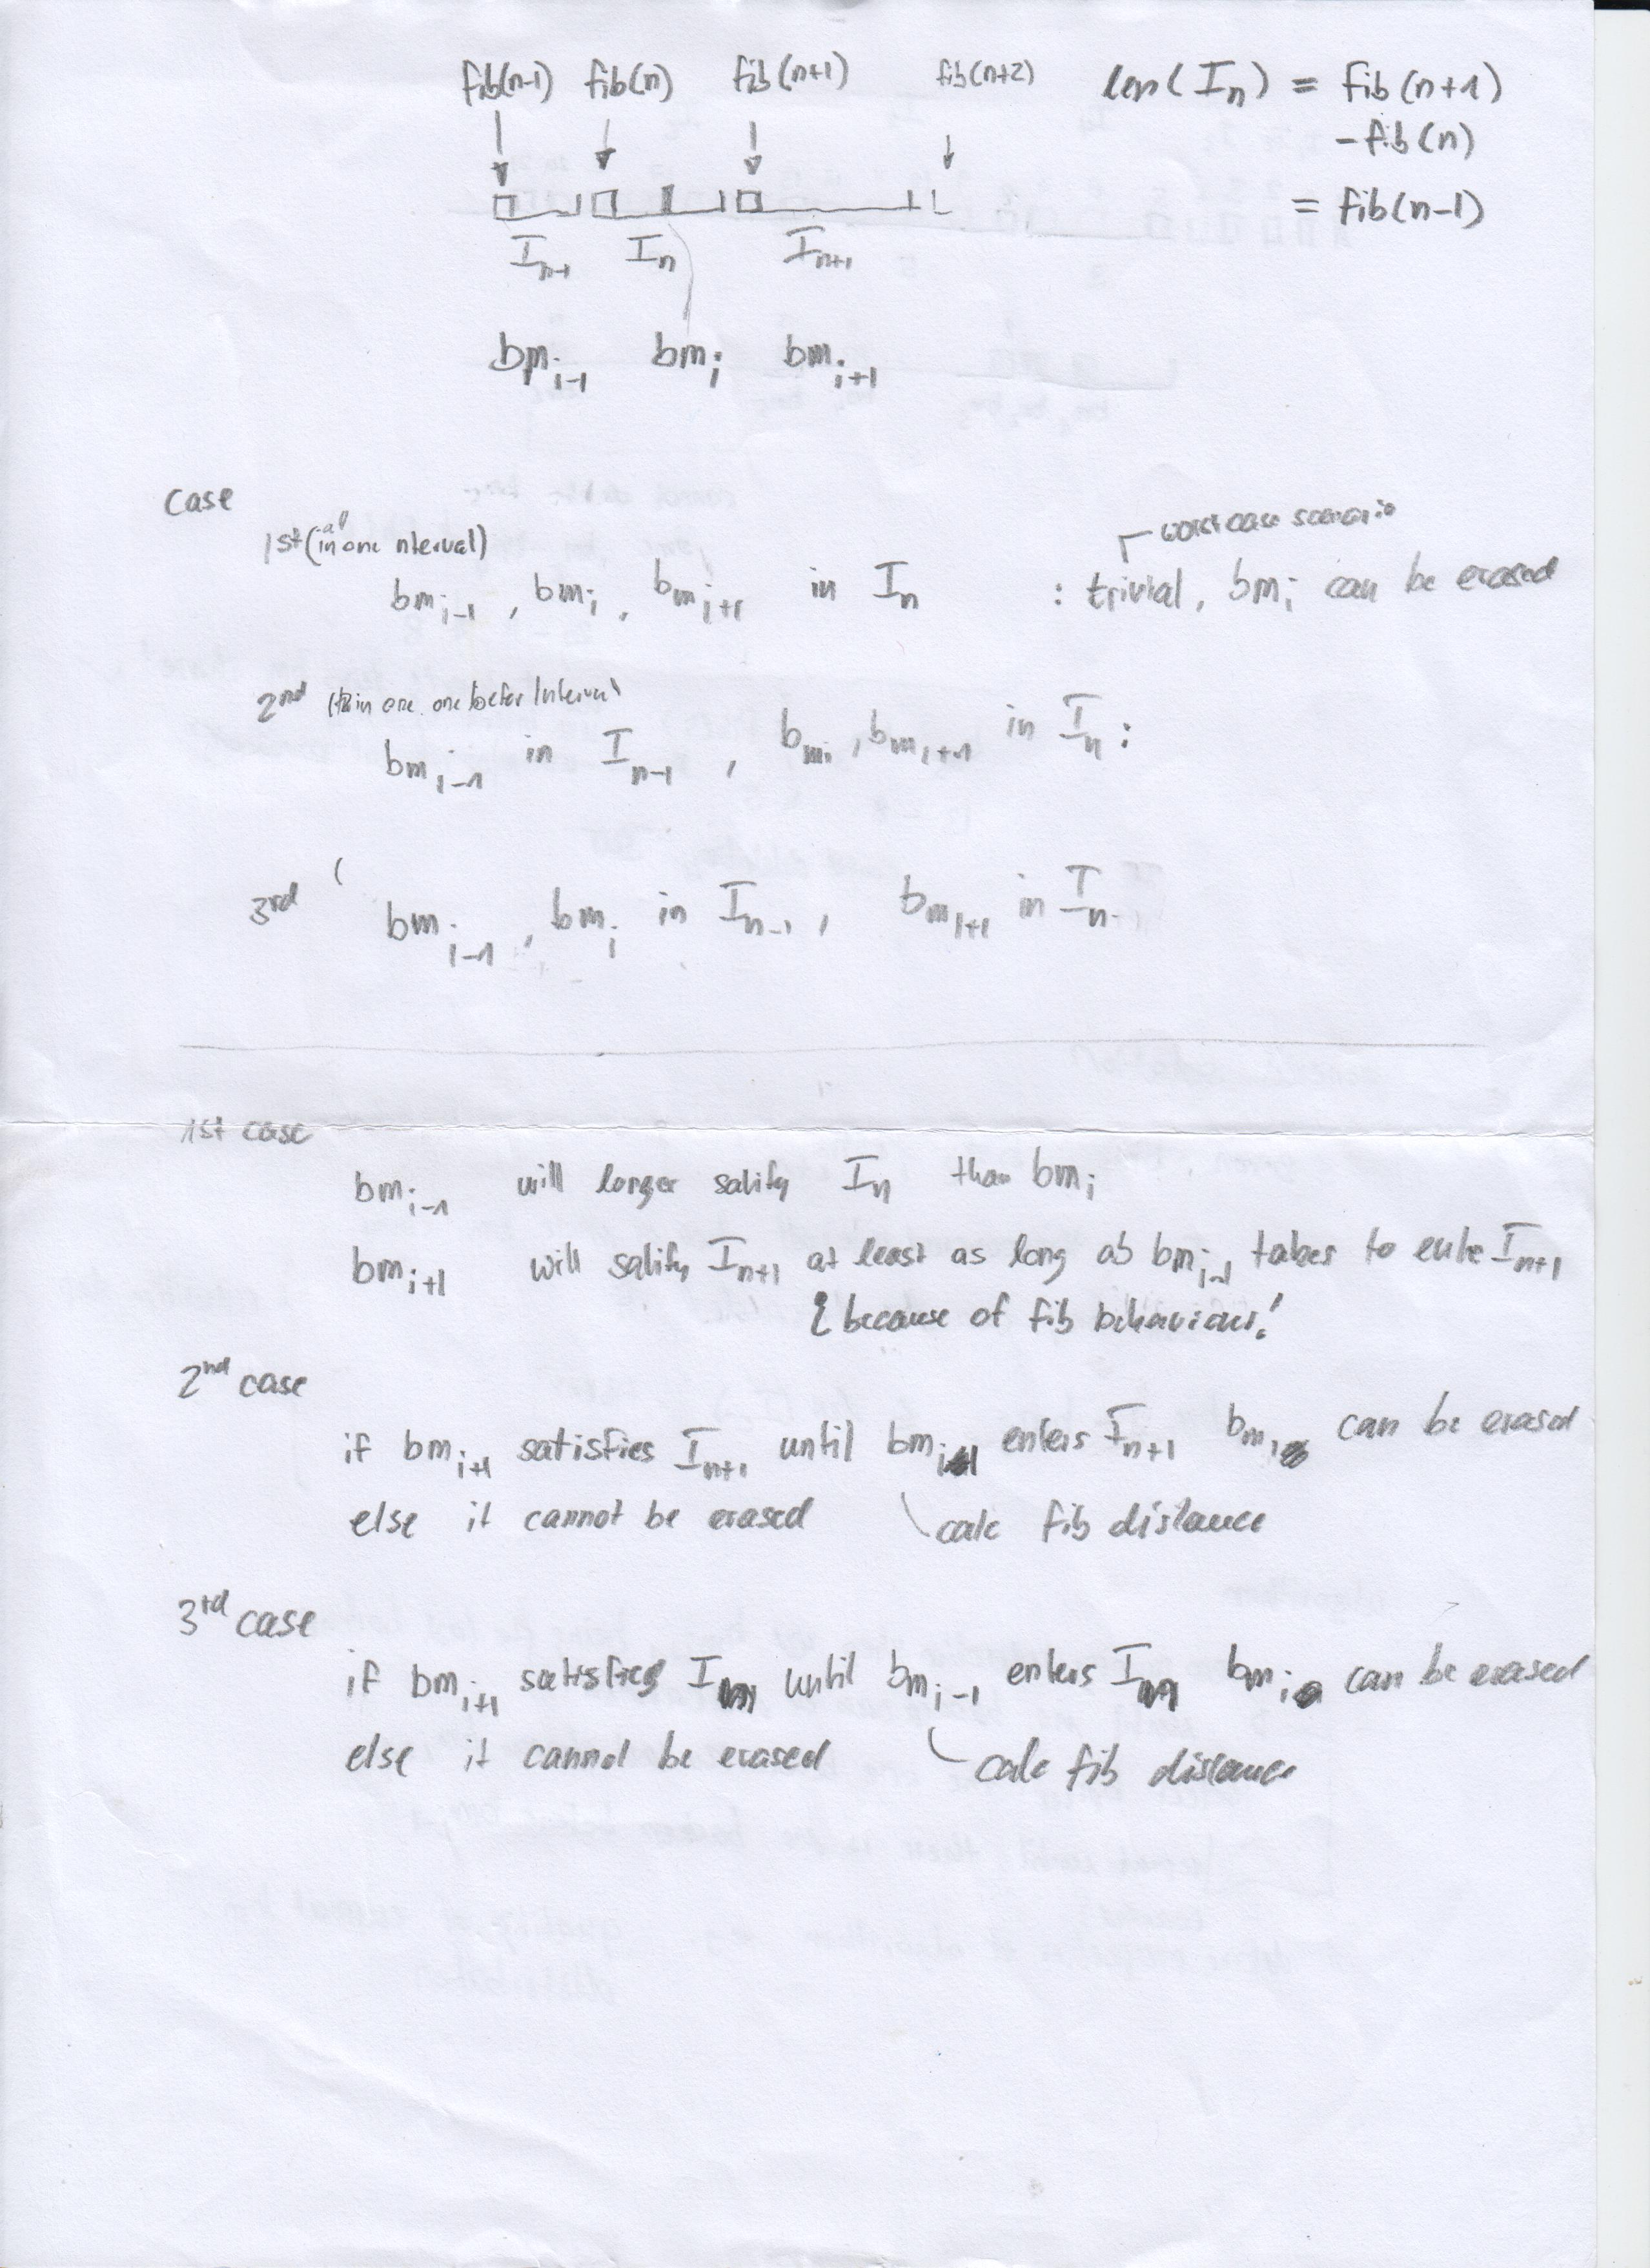 fib(n-1) fib(n) fib(n+1) fib(n+2) len(I_n) = fib(n+1)
-fib(n)
= fib(n-1)
I_n-1 I_n I_n+1
bm_i-1 bm_i bm_i+1
case
worst case scenario
1st (all in one nterval)
bm_i-1 , bm_i , bm_i+1 in I_n : trivial, bm_i can be erased
2nd ( in one one befor Interval
bm_i-1 in I_n-1 , bm_i , bm_i+1 in I_n :
3rd (
bm_i-1 , bm_i in I_n-1 , bm_i+1 in I_n
1st case
bm_i-1 will longer satify I_n than bm_i
bm_i+1 will satify I_n+1 at least as long as bm_i-1 takes to ente I_n+1
because of fib behaviour!
2nd case
if bm_i+1 satisfies I_n+1 until bm_i-1 enters I_n+1 bm_i can be erased
else it cannot be erased calc fib distance
3rd case
if bm_i+1 satisfies I_n until bm_i-1 enters I_n bm_i can be erased
else it cannot be erased calc fib distance